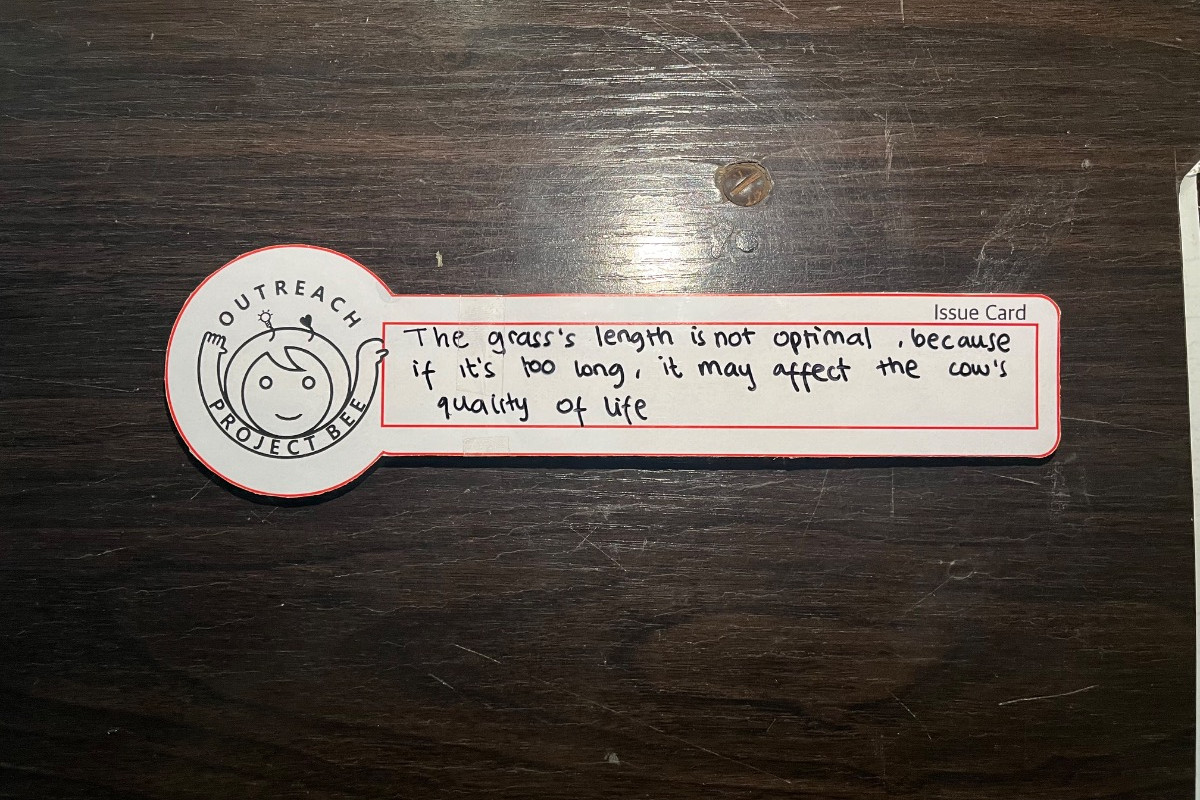 OUTREACH
PROJECT BEE
Issue Card
The grass's length is not optimal , because
if it's too long, it may affect the cow's
quality of life